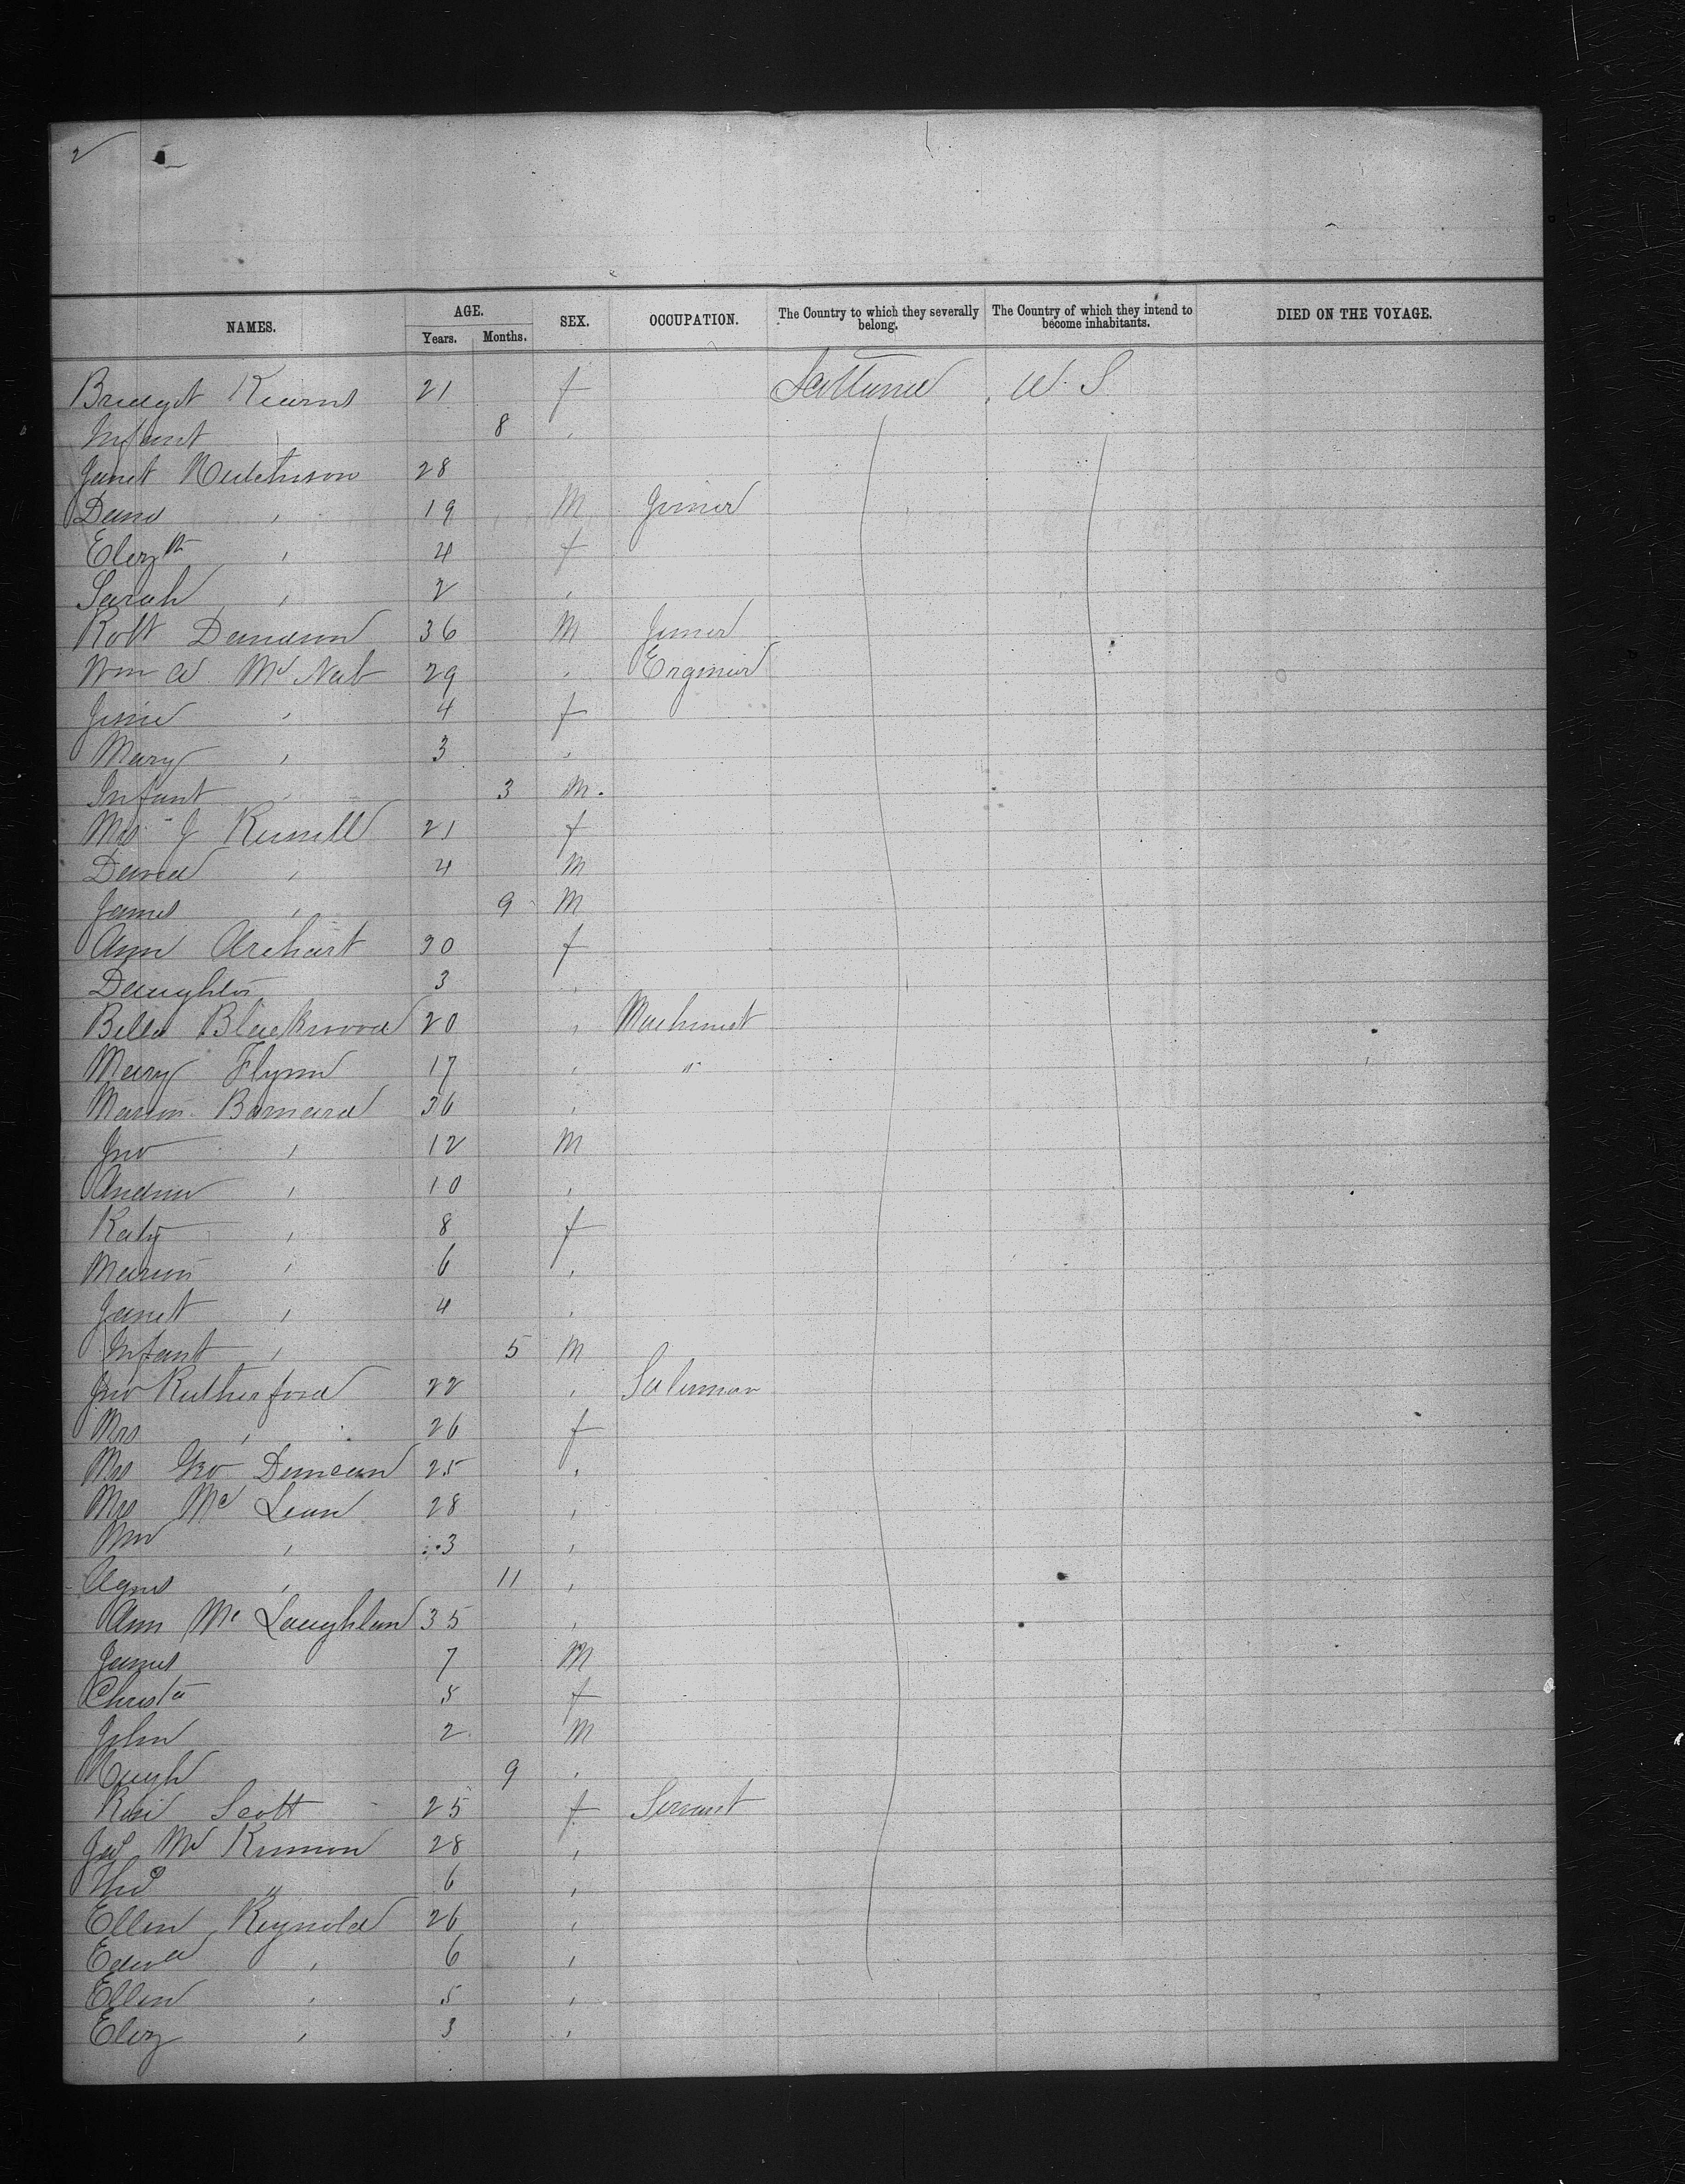 2
NAMES. AGE. Years. Months. SEX. OCCUPATION. The Country to which they severally belong. The Country of which they intend to become inhabitants. DIED ON THE VOYAGE.
Bridget Kearns 21 f Scotland U. S.
Infant 8 "
Janet Hutchison 28
David " 19 M Joiner
Elizth " 4 f
Sarah " 2 "
Robt Davidson 36 M Joiner
Wm A McNab 29 " Engineer
Jessie " 4 f
Mary " 3 "
Infant " 3 M.
Mrs J Russell 21 f
David " 4 M
James " 9 M
Ann Archart 30 f
Daughter 3 "
Bella Blackwood 20 " Machinist
Mary Flynn 17 " "
Marion Barnard 36 "
Jno " 12 M
Andrew " 10 "
Katy " 8 f
Marion " 6 "
Janet " 4 "
Infant " 5 M
Jno Rutherford 22 " Salesman
Mrs " 26 f
Mrs Geo Duncan 25 "
Mrs McLean 28 "
Wm " 3 "
Agnes " 11 "
Ann McLaughlan 35 "
James 7 M
Christa 5 f
John 2 M
Hugh 9 "
Rose Scott 25 f Servant
Jas McKinnon 28 "
Thos " 6 "
Ellen Reynold 26 "
Edwd " 6 "
Ellen " 5 "
Eliz " 3 "